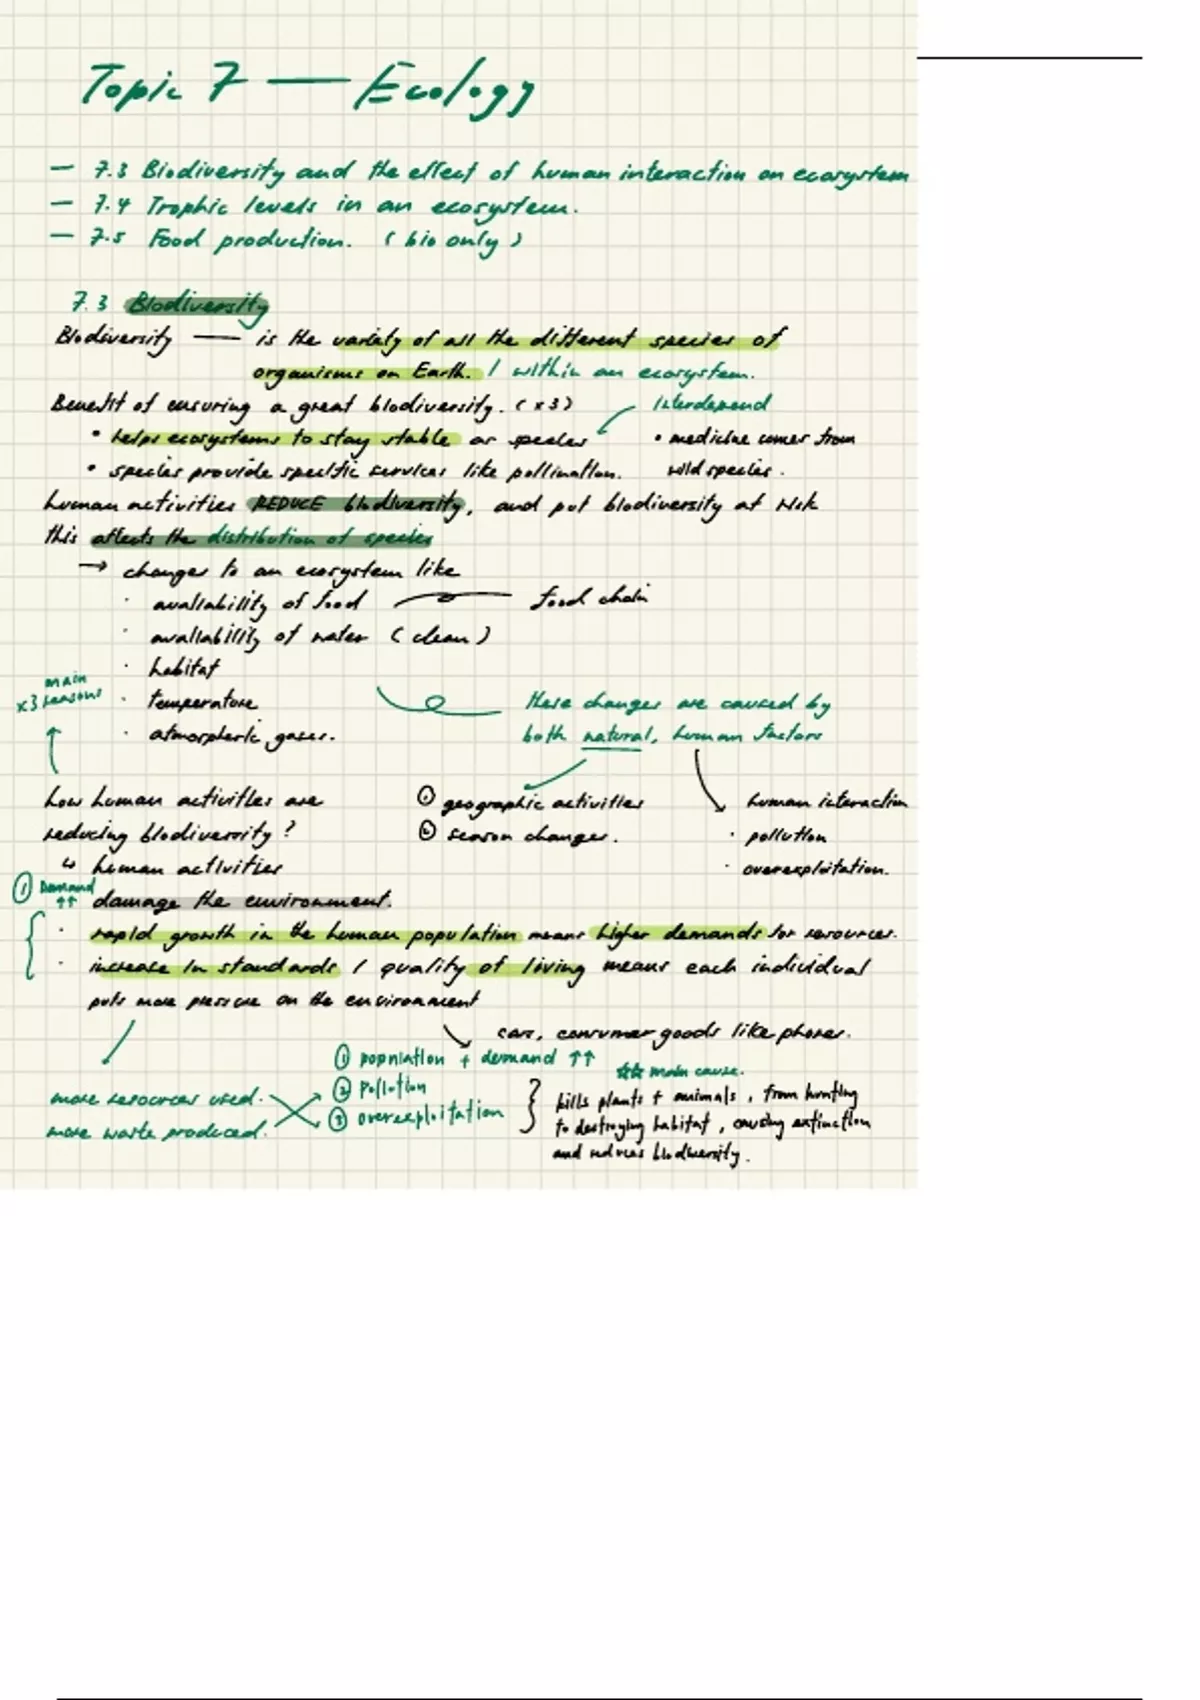 Topic 7 — Ecology
— 7.3 Biodiversity and the effect of human interaction on ecosystem
— 7.4 Trophic levels in an ecosystem.
— 7.5 Food production. (bio only)
7.3 Biodiversity
Biodiversity — is the variety of all the different species of
organisms on Earth. / within an ecosystem.
Benefit of ensuring a great biodiversity. (x3)
Interdepend
• helps ecosystems to stay stable as species
• medicine comes from
wild species.
• species provide specific services like pollination.
human activities REDUCE biodiversity, and put biodiversity at risk
this affects the distribution of species
→ changes to an ecosystem like
· availability of food — food chain
· availability of water (clean)
· habitat
· temperature
· atmospheric gases.
main
x3 reasons
these changes are caused by
both natural, human factors
how human activities are
reducing biodiversity?
↳ human activities
damage the environment.
① geographic activities
② season changes.
human interaction
· pollution
· overexploitation.
① Demand
↑↑
· rapid growth in the human population means higher demands for resources.
· increase in standards / quality of living means each individual
puts more pressure on the environment
cars, consumer goods like phones.
more resources used.
more waste produced.
① population + demand ↑↑
② Pollution
③ overexploitation
☆☆ main cause.
kills plants + animals, from hunting
to destroying habitat, causing extinction
and reduces biodiversity.